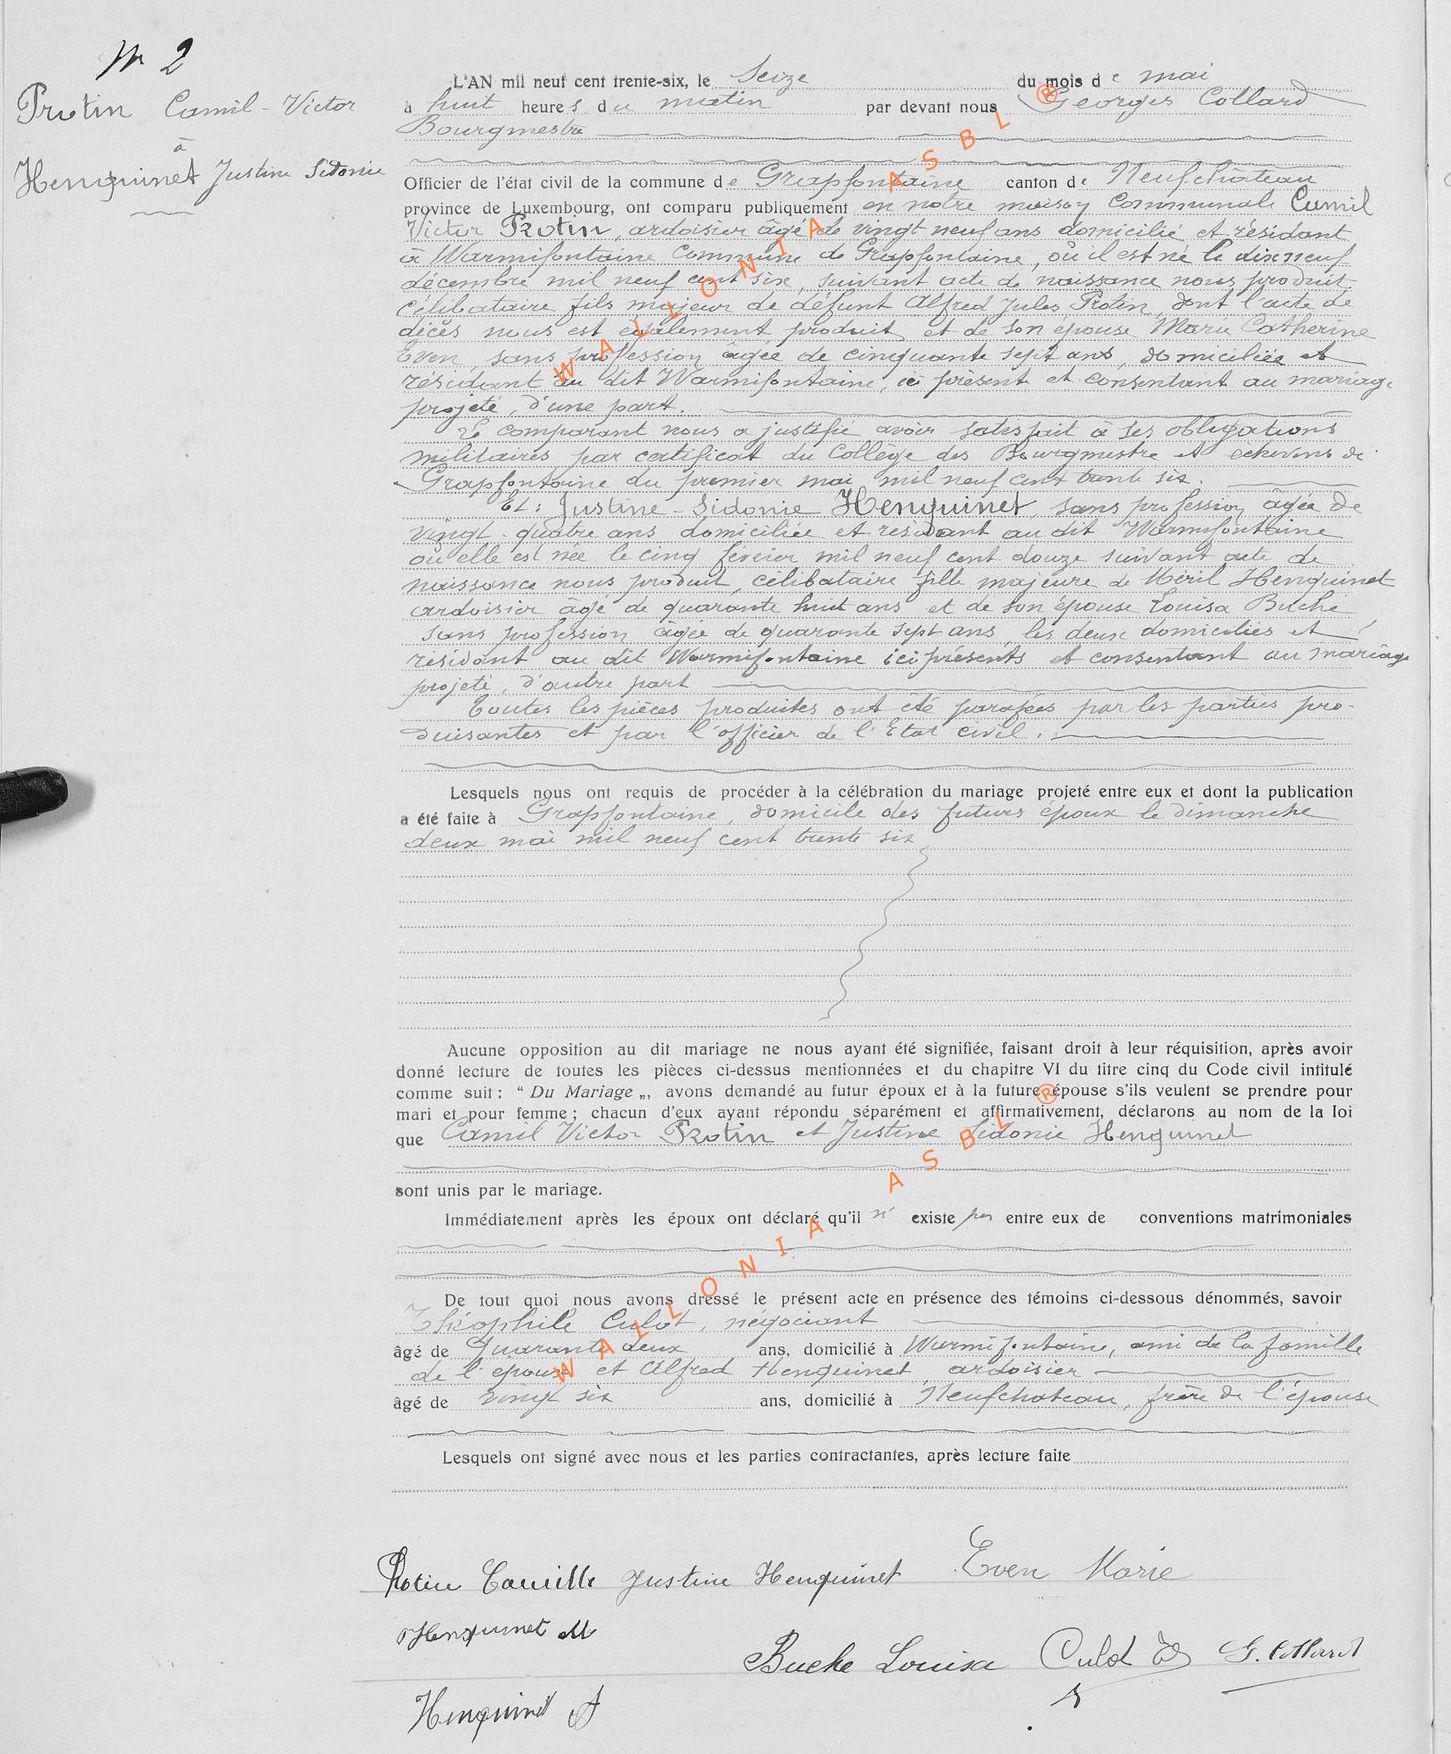 N° 2
Protin Camil-Victor
à
Henquinet Justine Sidonie
L'AN mil neuf cent trente-six, le Seize du mois de mai
à huit heures du matin par devant nous Georges Collard
Bourgmestre
Officier de l'état civil de la commune de Grapfontaine canton de Neufchâteau
province de Luxembourg, ont comparu publiquement en notre maison communale Camil
Victor Protin, ardoisier âgé de vingt neuf ans domicilié et résidant
à Warmifontaine Commune de Grapfontaine, où il est né le dix neuf
décembre mil neuf cent six, suivant acte de naissance nous produit
célibataire fils majeur de défunt Alfred Jules Protin, dont l'acte de
décès nous est également produit et de son épouse Marie Catherine
Even, sans profession âgée de cinquante sept ans, domiciliée et
résidant au dit Warmifontaine, ici présent et consentant au mariage
projeté, d'une part.
Le comparant nous a justifié avoir satisfait à ses obligations
militaires par certificat du Collège des Bourgmestre et échevins de
Grapfontaine du premier mai mil neuf cent trente six.
Et: Justine-Sidonie Henquinet, sans profession âgée de
vingt-quatre ans domiciliée et résidant au dit Warmifontaine
où elle est née le cinq février mil neuf cent douze suivant acte de
naissance nous produit, célibataire fille majeure de Méril Henquinet
ardoisier âgé de quarante huit ans et de son épouse Louisa Buche
sans profession âgée de quarante sept ans, les deux domiciliés et
résidant au dit Warmifontaine ici présents et consentant au mariage
projeté, d'autre part
Toutes les pièces produites ont été parafées par les parties pro-
duisantes et par l'officier de l'Etat civil.
Lesquels nous ont requis de procéder à la célébration du mariage projeté entre eux et dont la publication
a été faite à Grapfontaine, domicile des futurs époux le dimanche
deux mai mil neuf cent trente six
Aucune opposition au dit mariage ne nous ayant été signifiée, faisant droit à leur réquisition, après avoir
donné lecture de toutes les pièces ci-dessus mentionnées et du chapitre VI du titre cinq du Code civil intitulé
comme suit : “ Du Mariage „, avons demandé au futur époux et à la future épouse s'ils veulent se prendre pour
mari et pour femme ; chacun d'eux ayant répondu séparément et affirmativement, déclarons au nom de la loi
que Camil Victor Protin et Justine Sidonie Henquinet
sont unis par le mariage.
Immédiatement après les époux ont déclaré qu'il n' existe pas entre eux de conventions matrimoniales
De tout quoi nous avons dressé le présent acte en présence des témoins ci-dessous dénommés, savoir
Théophile Culot, négociant
âgé de Quarante deux ans, domicilié à Warmifontaine, ami de la famille
de l'épouse et Alfred Henquinet, ardoisier
âgé de vingt six ans, domicilié à Neufchateau, frère de l'épouse
Lesquels ont signé avec nous et les parties contractantes, après lecture faite
Protin Camille Justine Henquinet Even Marie
Henquinet M
Buche Louisa Culot G. Collard
Henquinet A
WALLONIA ASBL ®
WALLONIA ASBL ®